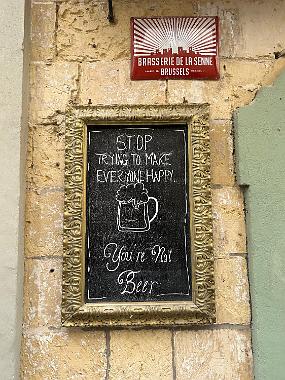 BRASSERIE DE LA SENNE
BRUSSELS
STOP
TRYING TO MAKE
EVERYONE HAPPY.
You're Not
Beer